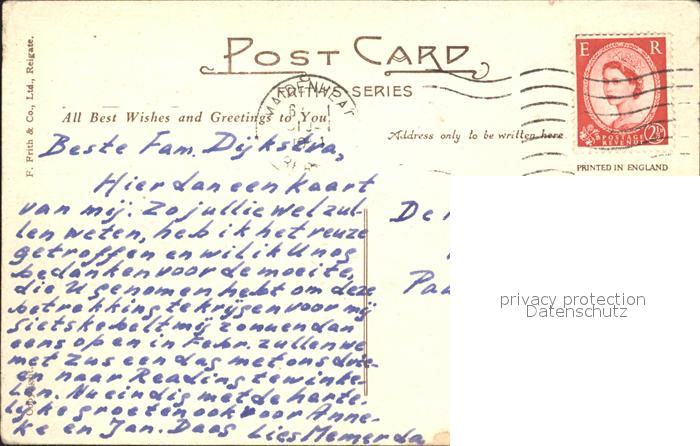 POST CARD
FRITH'S SERIES
All Best Wishes and Greetings to You.
Address only to be written here
F. Frith & Co., Ltd., Reigate.
E R
POSTAGE
REVENUE
2½
PRINTED IN ENGLAND
MAIDENHEAD
Beste Fam. Dijkstra,
Hier dan een kaart
van mij. Zo jullie wel zul-
len weten, heb ik het reuze
getroffen en wil ik U nog
bedanken voor de moeite,
die U genomen hebt om deze
betrekking te krijgen voor mij
Sietske belt mij zo nu en dan
eens op en in Febr. zullen we
met Zus een dag met ons drie-
en naar Reading te winke-
len. Nu eindig met de harte-
lijke groeten ook voor Anne-
ke en Jan. Daag Lies
De
Copyright.
privacy protection
Datenschutz